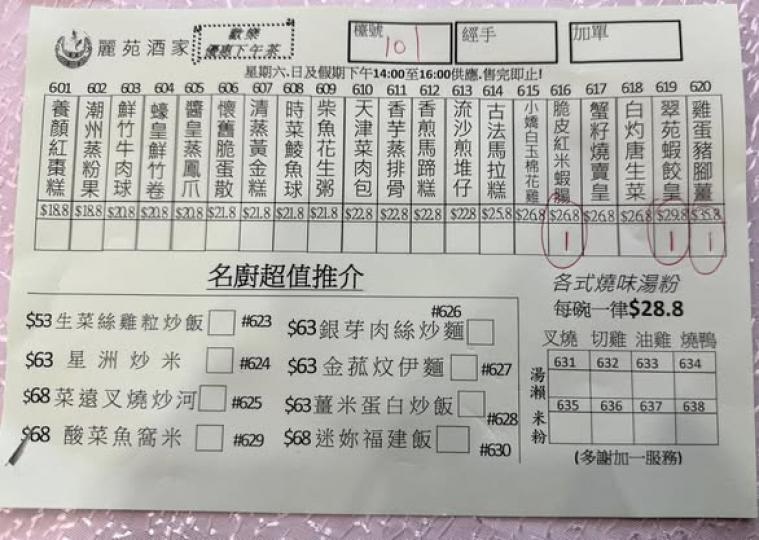 麗苑酒家
歡樂
優惠下午茶
檯號 101
經手
加單
星期六.日及假期下午14:00至16:00供應.售完即止!
601 602 603 604 605 606 607 608 609 610 611 612 613 614 615 616 617 618 619 620
養顏紅棗糕
潮州蒸粉果
鮮竹牛肉球
蠔皇鮮竹卷
醬皇蒸鳳爪
懷舊脆蛋散
清蒸黃金糕
時菜鯪魚球
柴魚花生粥
天津菜肉包
香芋蒸排骨
香煎馬蹄糕
流沙煎堆仔
古法馬拉糕
小嬌白玉棉花雞
脆皮紅米蝦腸
蟹籽燒賣皇
白灼唐生菜
翠苑蝦餃皇
雞蛋豬腳薑
$18.8 $18.8 $20.8 $20.8 $20.8 $21.8 $21.8 $21.8 $21.8 $22.8 $22.8 $22.8 $22.8 $25.8 $26.8 $26.8 $26.8 $26.8 $29.8 $35.8
1 1 1
名廚超值推介
$53 生菜絲雞粒炒飯 #623
$63 星洲炒米 #624
$68 菜遠叉燒炒河 #625
$68 酸菜魚窩米 #629
#626
$63 銀芽肉絲炒麵
$63 金菰炆伊麵 #627
$63 薑米蛋白炒飯 #628
$68 迷妳福建飯 #630
各式燒味湯粉
每碗一律$28.8
叉燒 切雞 油雞 燒鴨
湯瀨 631 632 633 634
米粉 635 636 637 638
(多謝加一服務)